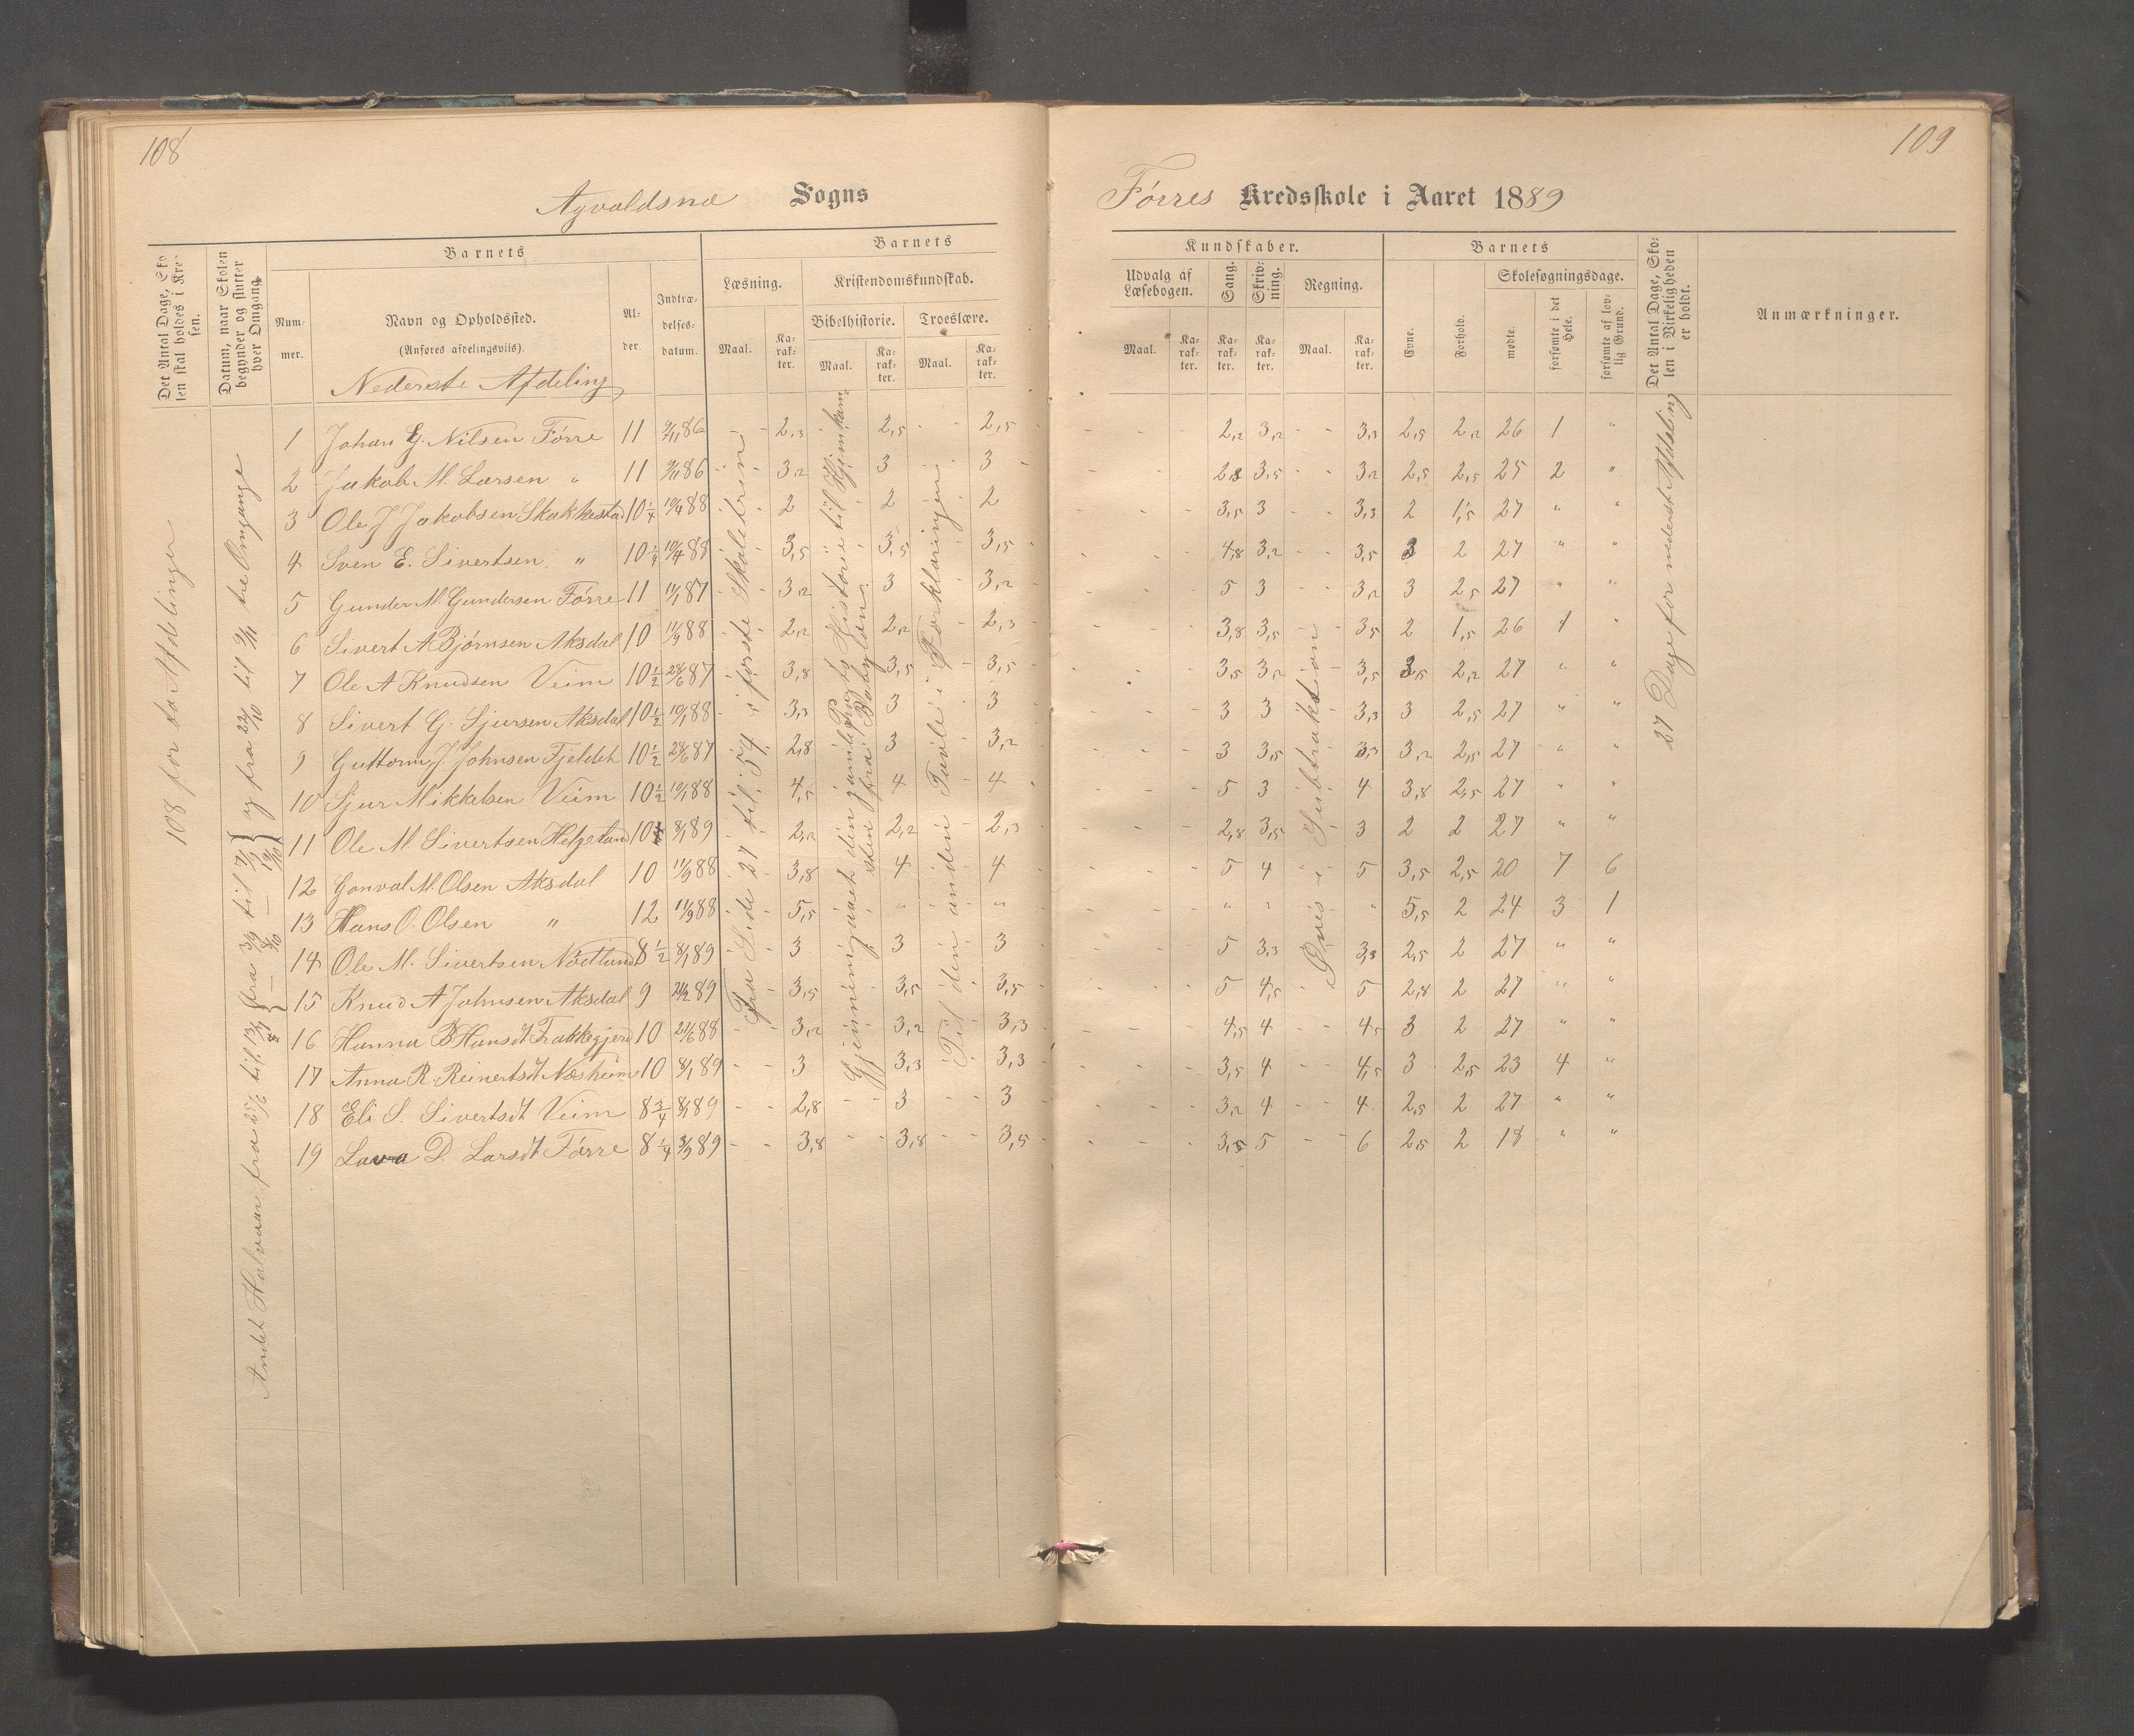 108
Avaldsnæ Sogns
Det Antal Dage, Skolen skal holdes i Kredsen.
Datum, naar Skolen begynder og slutter hver Omgang.
Barnets
Barnets
Nummer.
Navn og Opholdssted.
(Anføres afdelingsviis).
Nederste Afdeling
Alder.
Indtrædelsesdatum.
Læsning.
Kristendomskundskab.
Bibelhistorie.
Troeslære.
Maal.
Karakter.
Maal.
Karakter.
Maal.
Karakter.
108 for to Afdelinger
Andet Halvaar fra 25/6 til 13/7 fra 3/9 til
og fra 22/10 til 9/11 tre Omgange
Fra Side 27 til 54 i første Skoletrin
Gjennemgaaet den gamle Pagts Historie til Hjemkomsten fra Babylon
Til den anden Tavle i Forklaringen
1 Johan G. Nilsen Førre 11 9/11 86 2,3 2,5 2,5
2 Jakob M. Larsen " 11 86 3,2 3 3
3 Ole J Jakobsen Skakkestad 10 1/4 10/4 88 2 2 2
4 Sven E. Sivertsen " 10 1/4 10/4 88 3,5 " 3,5 3,5
5 Gunder M. Gundersen Førre 11 11/1 87 3,2 3 3,2
6 Sivert A Bjørnsen Aksdal 10 11/9 88 2,2 2,2 2,3
7 Ole A Knudsen Veim 10 1/2 28/6 87 3,8 3,5 3,5
8 Sivert G. Sjursen Aksdal 10 1/2 10/1 88 3,3 3 3
9 Guttorm J Johnsen Fjeldet 10 1/2 28/6 87 2,8 3 3,2
10 Sjur Mikkelsen Veim 10 1/2 10/1 88 4,5 4 4
11 Ole M. Sivertsen Helgeland 10 8/1 89 2,2 2,2 2,3
12 Gonval M. Olsen Aksdal 10 11/9 88 3,8 4 4
13 Hans O. Olsen " 12 11/9 88 5,5 " "
14 Ole M. Sivertsen Nødtland 8 1/2 8/1 89 3 3 3
15 Knud A Johnsen Aksdal 9 89 3,5 3,5 3,5
16 Hanna B Hansdt Frakkegjerd 10 21/6 88 3,2 3,2 3,3
17 Anna R. Reinertsdt Næsheim 10 8/1 89 3 3,3 3,3
18 Eli S. Sivertsdt Veim 8 3/4 8/1 89 2,8 3 3
19 Lava D. Larsdt Førre 8 1/4 3/9 89 3,8 3,8 3,5
109
Førres Kredsskole i Aaret 1889
Kundskaber.
Barnets
Udvalg af Læsebogen.
Sang.
Skrivning.
Regning.
Maal.
Karakter.
Karakter.
Karakter.
Maal.
Karakter.
Evne.
Forhold.
Skolesøgningsdage.
mødte.
forsømte i det Hele.
forsømte af lovlig Grund.
Det Antal Dage, Skolen i Virkeligheden er holdt.
Anmærkninger.
Øvis i Subtraktion
27 Dage for nederst Afdeling
2,2 3,2 3,3 2,5 2,2 26 1 "
2,8 3,5 3,2 2,5 2,5 25 2 "
3,5 3 3,3 2 1,5 27 " "
4,8 3,2 3,5 3 2 27 " "
5 3 3,2 3 2,5 27 " "
3,8 3,5 3,5 2 1,5 26 1 "
3,5 3,2 3,5 3,5 2,2 27 " "
3 3 3,3 3 2,5 27 " "
3 3,5 3,3 3,2 2,5 27 " "
5 3 4 3,8 2,5 27 " "
2,8 3,5 3 2 2 27 " "
5 4 5 3,5 2,5 20 7 6
" " " 5,5 2 24 3 1
5 3,3 3,3 2,5 2 27 " "
5 4,5 5 2,8 2 27 " "
4,5 4 4,5 3 2 27 " "
3,5 4 4,5 3 2,5 23 4 "
3,2 4 4 2,5 2 27 " "
3,5 5 6 2,5 2 18 " "